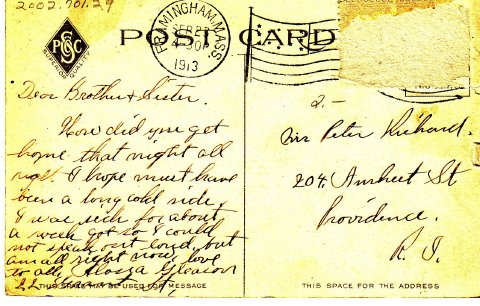 2002.701.29
PSC CO
SUPERIOR QUALITY
POST CARD
FRAMINGHAM, MASS.
SEP 22
4-30P
1913
Dear Brother & Sister.
How did you get
home that night all
right I hope must have
been a long cold ride.
I was sick for about
a week got so I could
not speak out loud, but
am all right now, love
to all, Gleason
THIS SPACE MAY BE USED FOR MESSAGE
2.-
Mr Peter Richard.
204 Amherst St
Providence.
R. I.
THIS SPACE FOR THE ADDRESS